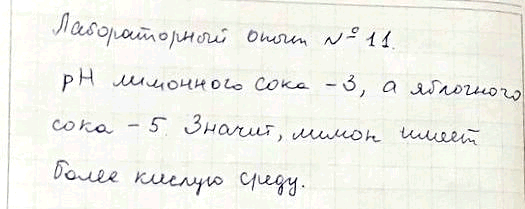 Лабораторный опыт №11.
pH лимонного сока -3, а яблочного
сока - 5. Значит, лимон имеет
более кислую среду.